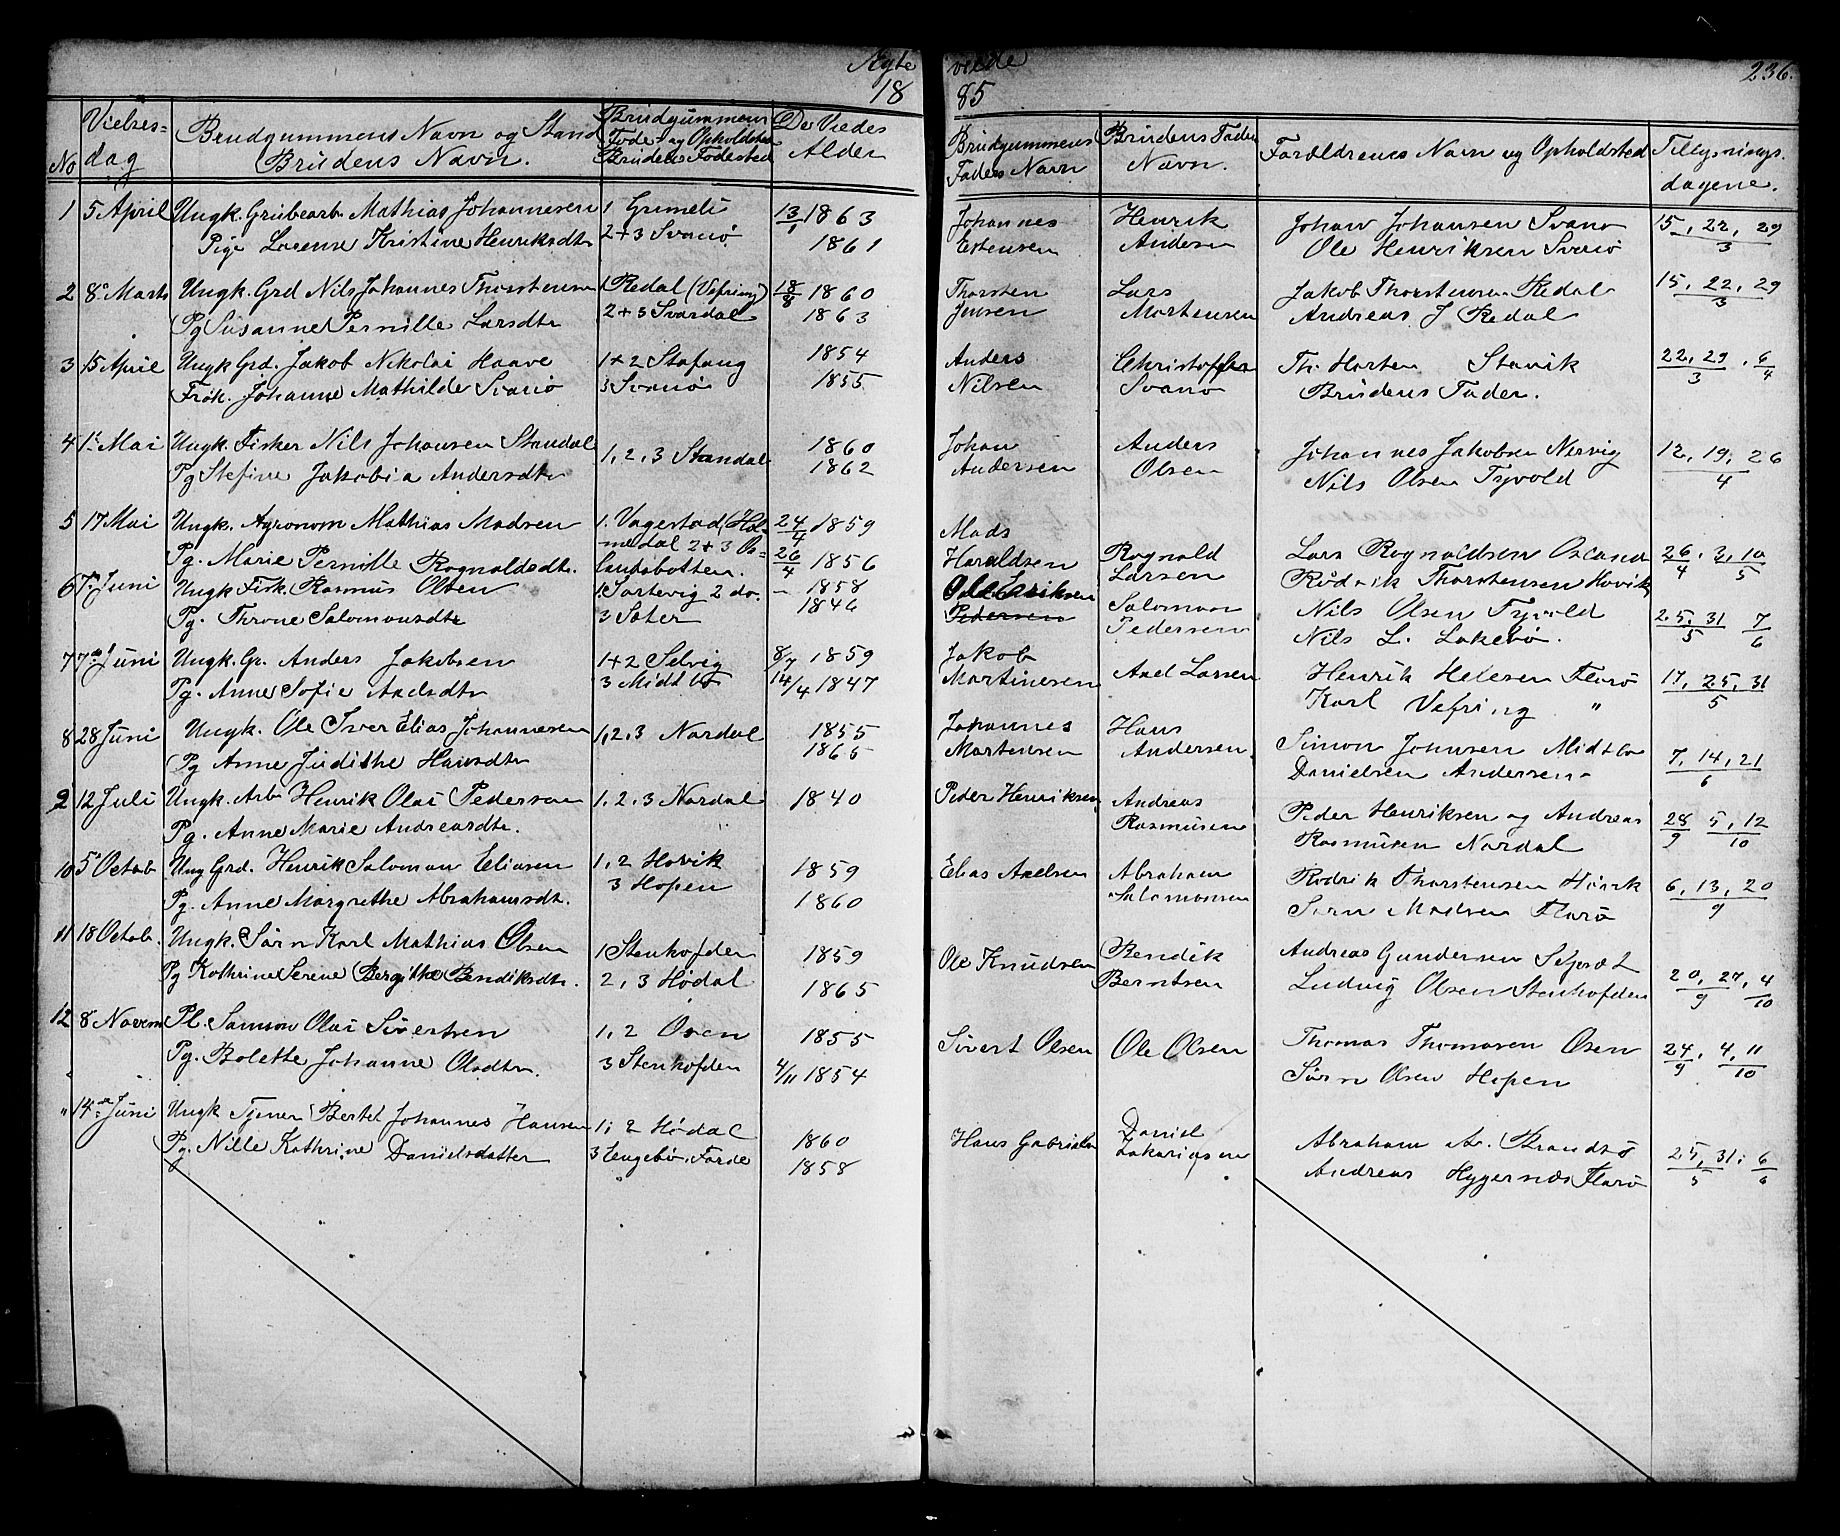 Ægte
viede
236.
18
85
No
Vielses-
dag
Brudgummens Navn og Stand
Brudens Navn.
Brudgummens
Føde- og Opholdsted
Brudens Fødested
De Viedes
Alder
Brudgummens
Faders Navn
Brudens Fader
Navn.
Forældrenes Navn og Opholdsted
Tillysnings.
dagene.
1 5 April Ungk. Grubearb. Mathias Johannesen 1 Grimeli 13/1 1863 Johannes Henrik Johan Johansen Svanø 15, 22, 29
Pige Lorense Kristine Henriksdtr 2+3 Svanø 1861 Estensen Andersen Ole Henriksen Svanø 3
2 8de Marts Ungk. Grd Nils Johannes Thorstensen 1 Redal (Vefring) 18/8 1860 Thorsten Lars Jakob Thorstensen Redal 15, 22, 29
Pg Susanne Pernille Larsdtr 2+3 Svardal 1863 Jensen Mortensen Andreas J Redal 3
3 15 April Ungk Grd. Jakob Nikolai Haave 1+2 Stafang 1854 Anders Christoffer Th. Horten Stavik 22, 29 . 6
Frøk. Johanne Mathilde Svanø 3 Svanø 1855 Nilsen Svanø Brudens Fader. 3 4
4 1ste Mai Ungk. Fisker Nils Johansen Standal 1, 2, 3 Standal 1860 Johan Anders Johannes Jakobsen Nervig 12, 19, 26
Pg Stefine Jakobia Andersdtr 1862 Andersen Olsen Nils Olsen Tyvold 4
5 17 Mai Ungk. Agronom Mathias Madsen 1. Vagestad, (Hol- 24/4 1859 Mads
medal 2+3 Os-
Pg. Marie Pernille Rognaldsdtr. landsbotten. 26/4 1856 Haraldsen Rognald Larsen Lars Rognaldsen Osland 26, 3, 10
Rødrik Thorstensen Hovik 4 5
6 7de Juni Ungk Fisk. Rasmus Olsen 1 Sortevig 2 do. — 1858 Ole Eriksen Salomon Nils Olsen Tyvold 25, 31 7
Pg. Throne Salomonsdtr 3 Sater 1846 Pedersen Pedersen Nils L. Lakebø. 5 6
7 7de Juni Ungk. Gr. Anders Jakobsen 1+2 Selvig 8/7 1859 Jakob Axel Larsen Henrik Helesen Florø 17, 25, 31
Pg. Anne Sofie Axelsdtr 3 Midtbø 14/4 1847 Martinesen Karl Vefring " 5
8 28 Juni Ungk. Ole Iver Elias Johannesen 1, 2, 3 Nordal 1855 Johannes Hans Simon Johnsen Midtbø 7, 14, 21
Pg Anne Judithe Hansdtr 1865 Martensen Andersen Danielsen Andersen 6
9 12 Juli Ungk. Arb Henrik Olai Pedersen 1, 2, 3 Nordal 1840 Peder Henriksen Andreas Peder Henriksen og Andreas 28 5, 12
Pg. Anne Marie Andreasdtr. Rasmusen Rasmusen Nordal 9 10
10 5te Octob Ung Grd. Henrik Salomon Eliasen 1, 2 Hovik 1859 Elias Axelsen Abraham Rødrik Thorstensen Hovik 6, 13, 20
Pg. Anne Margrethe Abrahamsdt. 3 Hopen 1860 Salomonsen Sørn Madsen Florø 9
11 18 Octob. Ungk. Sørn Karl Mathias Olsen 1 Stenhofden 1859 Ole Knudsen Bendik Andreas Gundersen 20, 27, 4
Pg Kathrine Serene Bergitte Bendiksdtr. 2, 3 Hødal 1865 Berntsen Ludvig Olsen Stenhofden 9 10
12 8 Novem Pl. Samson Olai Sivertsen 1, 2 Osen 1855 Sivert Olsen Ole Olsen Thomas Thomasen Osen 24, 4, 11
Pg. Bolette Johanne Olsdtr. 3 Stenhofden 4/11 1854 Sørn Olsen Hopen 9 10
" 14de Juni Ungk Tjener Bertel Johannes Hansen 1, 2 Hødal 1860 Hans Gabrielsen Daniel Abraham A. Brandsø 25, 31, 6
Pg. Nille Kathrine Danielsdatter 3 Tengebø, Førde 1858 Zakariasen Andreas Hygernæs Florø 5 6